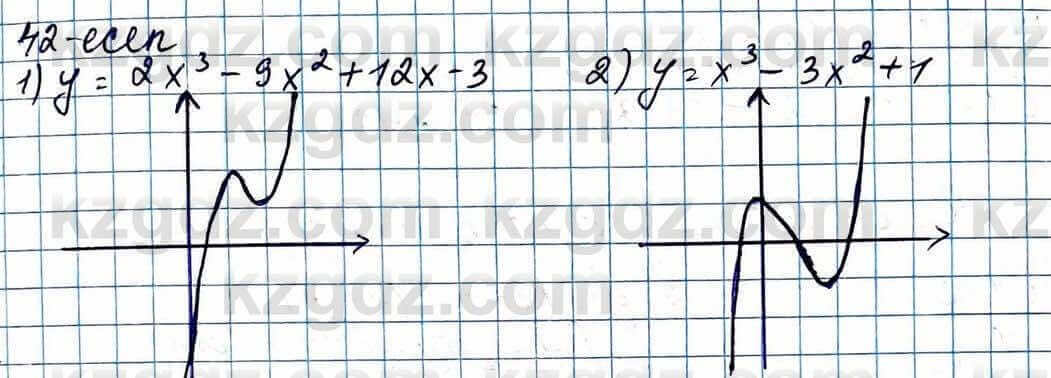 42-есеп
1) y = 2x³ - 9x² + 12x - 3
2) y = x³ - 3x² + 1
kzgdz.com kzgdz.com kz
kzgdz.com
kzgdz.com kzgdz.com kz
kzgdz.com